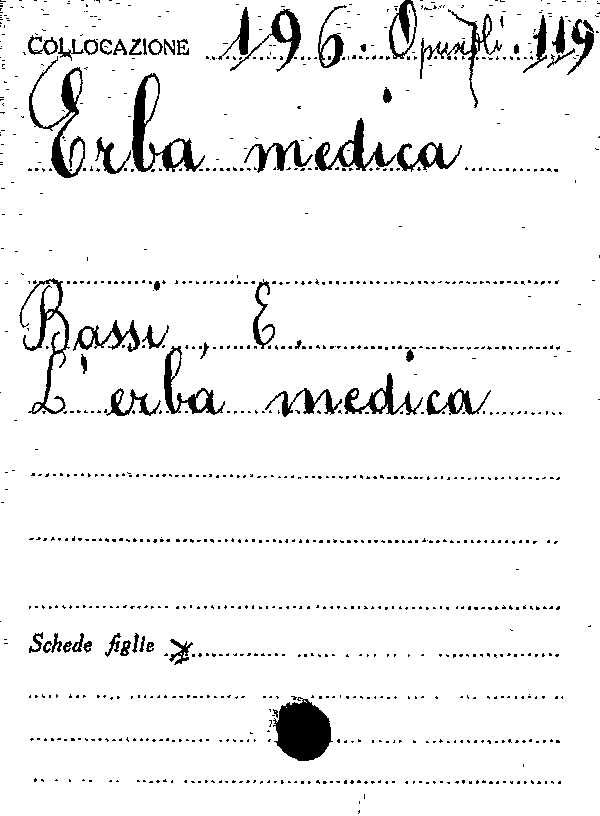 COLLOCAZIONE 196. Opuscoli. 119
Erba medica
Bassi, E.
L'erba medica
Schede figlie